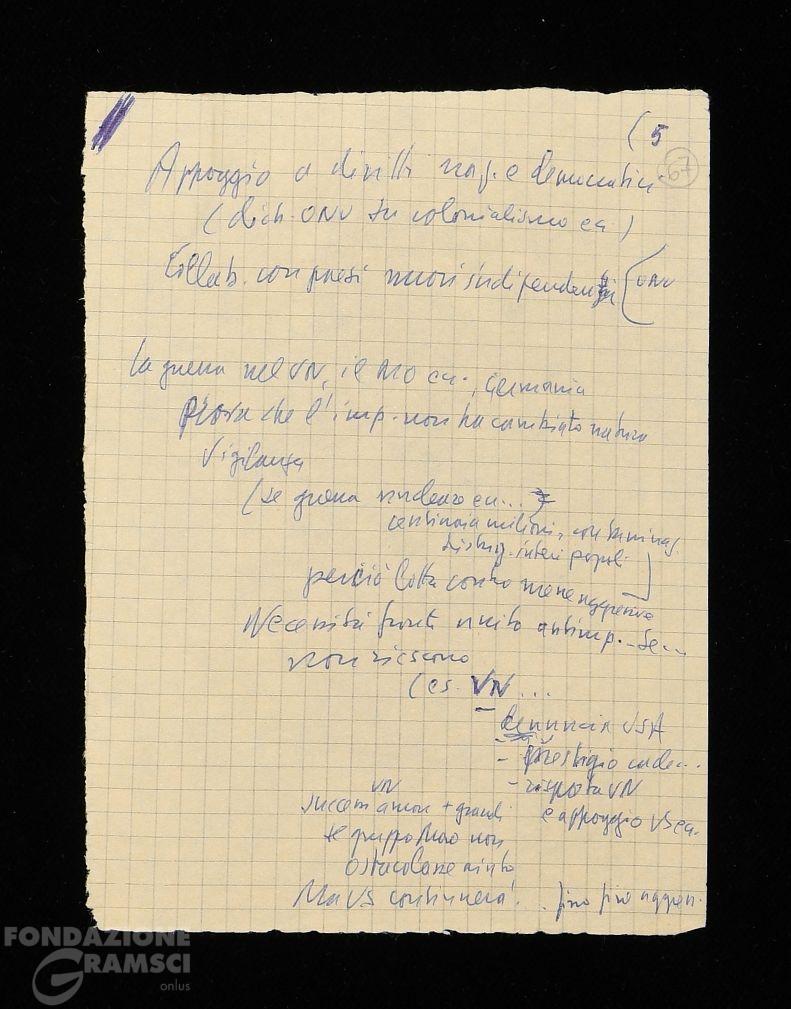 (5
67
Appoggio a diritti naz. e democratici
(dich. ONU su colonialismo ea)
Collab. con paesi nuovi indipendenti (ONU
La guerra nel VN, il MO ea., Germania
Prova che l'imp. non ha cambiato natura
Vigilanza
(se guerra nucleare ea...
centinaia milioni, contaminaz.
distruz. interi popoli
perciò lotta contro mene aggressive
Necessità fronte unito antimp. - se...
non riescono
(es. VN ...
denuncia USA
- prestigio cade...
- risposta VN
e appoggio US ea.
VN
successi ancora + grandi
se gruppo Mao non
ostacolasse aiuto
Ma US continuerà... fino fine aggres.
FONDAZIONE
GRAMSCI
onlus